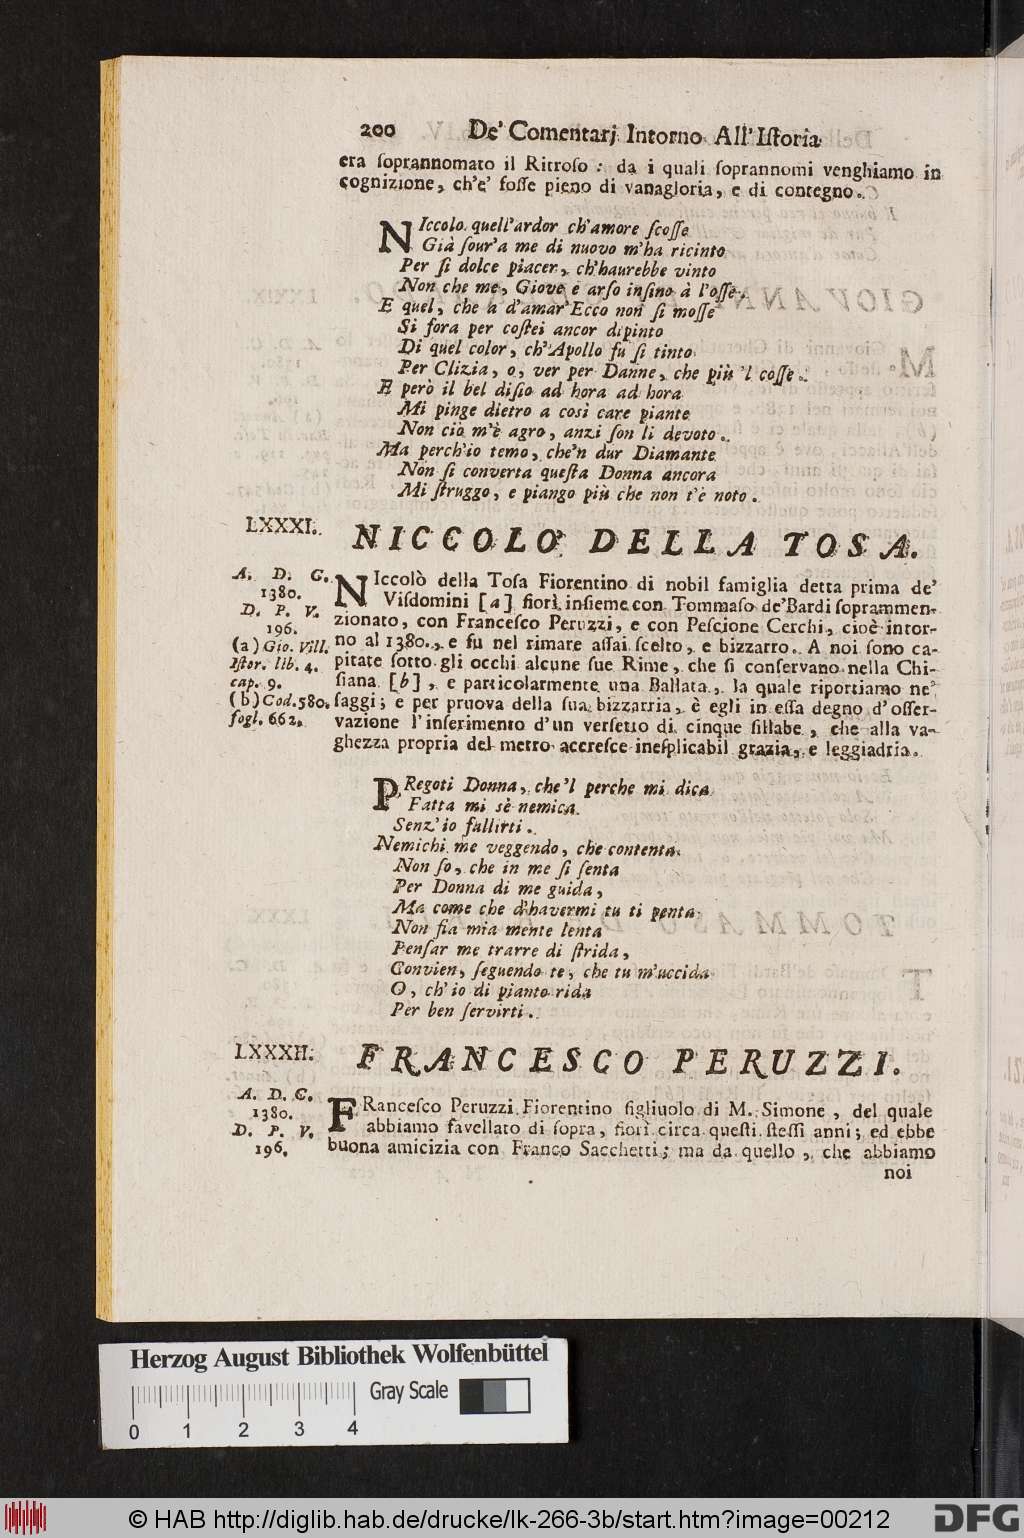 200 De' Comentarj Intorno All' Istoria
era soprannomato il Ritroso : da i quali soprannomi venghiamo in
cognizione, ch'e' fosse pieno di vanagloria, e di contegno.
NIccolo quell'ardor ch'amore scosse
Già sour'a me di nuovo m'ha ricinto
Per sì dolce piacer, ch'haurebbe vinto
Non che me, Giove e arso insino à l'osse.
E quel, che a d'amar' Ecco non si mosse
Si fora per costei ancor dipinto
Di quel color, ch'Apollo fu si tinto
Per Clizia, o, ver per Danne, che più 'l cosse.
E però il bel disio ad hora ad hora
Mi pinge dietro a così care piante
Non ciò m'è agro, anzi son li devoto.
Ma perch'io temo, che'n dur Diamante
Non si converta questa Donna ancora
Mi struggo, e piango più che non t'è noto.
LXXXI. NICCOLO' DELLA TOSA.
A. D. C.
1380.
D. P. V.
196.
(a) Gio. Vill.
Istor. lib. 4.
cap. 9.
(b) Cod. 580.
fogl. 662.
NIccolò della Tosa Fiorentino di nobil famiglia detta prima de'
Visdomini [a] fiorì insieme con Tommaso de'Bardi soprammen-
zionato, con Francesco Peruzzi, e con Pescione Cerchi, cioè intor-
no al 1380., e fu nel rimare assai scelto, e bizzarro. A noi sono ca-
pitate sotto gli occhi alcune sue Rime, che si conservano nella Chi-
siana [b], e particolarmente una Ballata, la quale riportiamo ne'
saggi; e per pruova della sua bizzarria, è egli in essa degno d'osser-
vazione l'inserimento d'un versetto di cinque sillabe, che alla va-
ghezza propria del metro accresce inesplicabil grazia, e leggiadria.
PRegoti Donna, che'l perche mi dica
Fatta mi sè nemica
Senz'io fallirti.
Nemichi me veggendo, che contenta
Non so, che in me si senta
Per Donna di me guida,
Ma come che d'havermi tu ti penta
Non fia mia mente lenta
Pensar me trarre di strida,
Convien, seguendo te, che tu m'uccida
O, ch'io di pianto rida
Per ben servirti.
LXXXII. FRANCESCO PERUZZI.
A. D. C.
1380.
D. P. V.
196.
FRancesco Peruzzi Fiorentino figliuolo di M. Simone, del quale
abbiamo favellato di sopra, fiorì circa questi stessi anni; ed ebbe
buona amicizia con Franco Sacchetti; ma da quello, che abbiamo
noi
Herzog August Bibliothek Wolfenbüttel
0 1 2 3 4
Gray Scale
© HAB http://diglib.hab.de/drucke/lk-266-3b/start.htm?image=00212
DFG